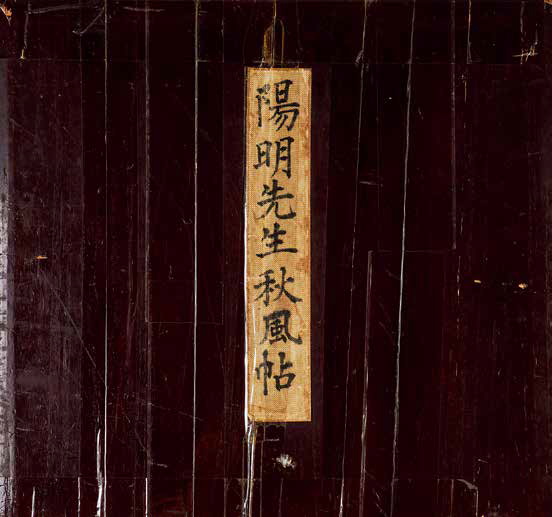 陽明先生秋風帖